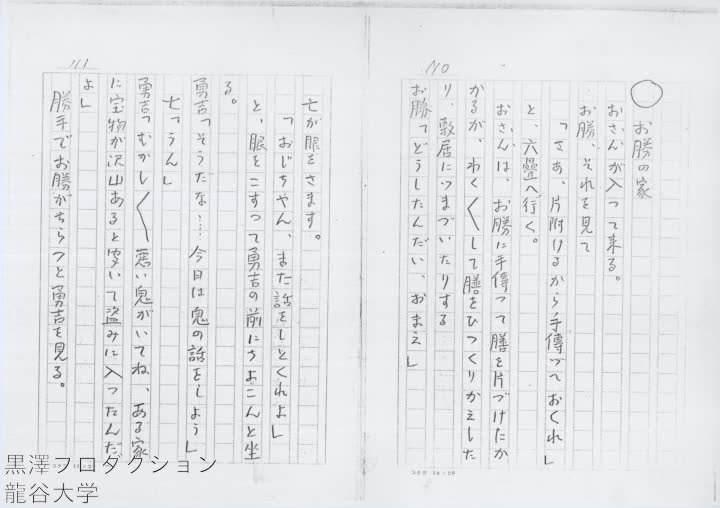 110
○ お勝の家
おさんが入って来る。
お勝、それを見て
「さあ、片附けるから手傳っておくれ」
と、六疊へ行く。
おさんは、お勝に手傳って膳を片づけたか
かるが、わく〱して膳をひつくりかえした
り、敷居につまづいたりする
お勝「どうしたんだい、おまえ」
111
七が眼をさます。
「おじちゃん、また話をしとくれよ」
と、眼をこすって勇吉の前にちょこんと坐
る。
勇吉「そうだな……今日は鬼の話をしよう」
七「うん」
勇吉「むかし〱悪い鬼がいてね、ある家
に宝物が沢山あると聞いて盗みに入ったんだ
よ」
勝手でお勝がちらっと勇吉を見る。
コクヨ 20×20
コクヨ 20×20
黒澤プロダクション
龍谷大学